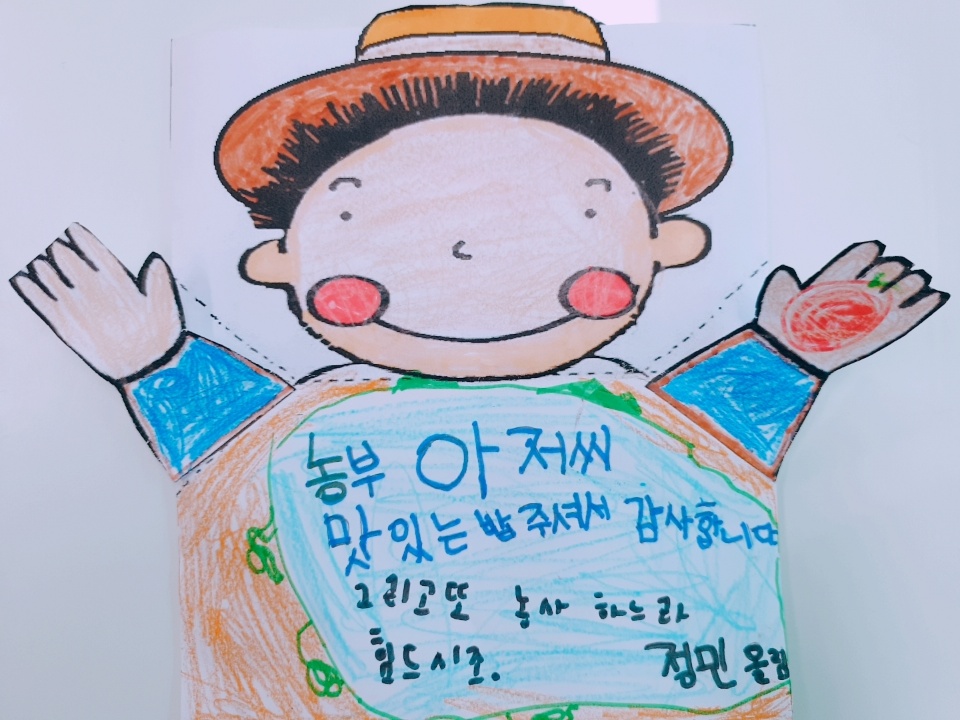 농부 아저씨
맛있는 밥 주셔서 감사합니다
그리고 또 농사 하느라
힘드시조.
정민 올림